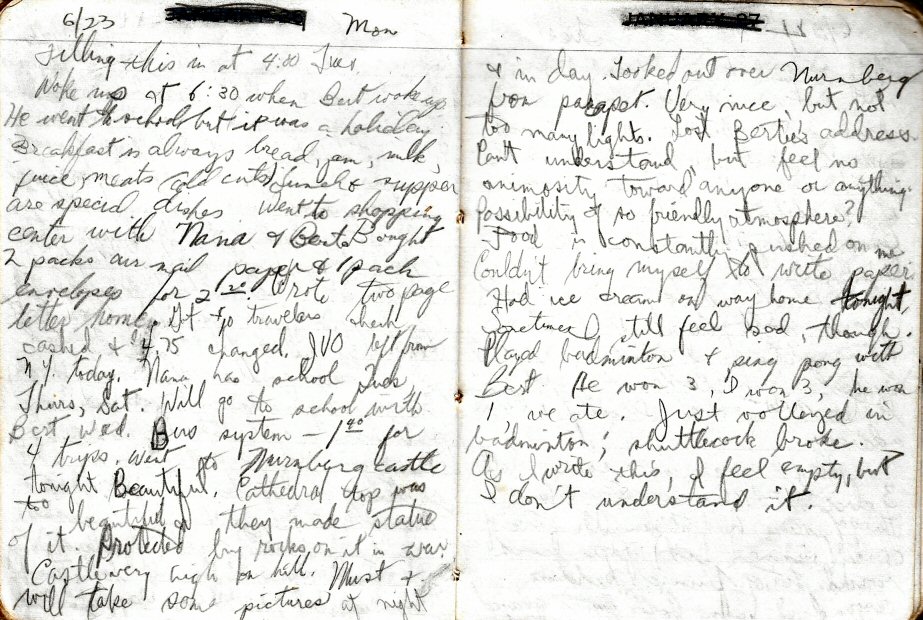 6/23 Mon
Filling this in at 4:00 Tues.
Woke up at 6:30 when Bert woke up
He went to school but it was a holiday.
Breakfast is always bread, jam, milk,
juice, meats (cold cuts) Lunch & supper
are special dishes. Went to shopping
center with Nana & Bert. Bought
2 packs air mail paper & 1 pack
envelopes for 2.20. Wrote two page
letter home. Got $10 travelers check
cashed & 4.75 changed. left from
N.Y. today. Nana has school Tues,
Thurs, Sat. Will go to school with
Bert Wed. Bus system - 1.40 for
4 trips. Went to Nurnberg castle
tonight Beautiful. Cathedral top was
too beautiful so they made statue
of it. Protected by rocks on it in war.
Castle very high on hill. Must &
will take some pictures at night
JANUARY 27
& in day. Looked out over Nurnberg
from parapet. Very nice, but not
too many lights. Lost Bertie's address
Can't understand, but feel no
animosity toward anyone or anything.
Possibility of so friendly atmosphere?
Food is constantly pushed on me
Couldn't bring myself to write paper.
Had ice cream on way home tonight,
Sometimes I still feel sad, though.
Played badminton & ping pong with
Bert. He won 3, I won 3, he won
1, we ate. Just volleyed in
badminton; shuttlecock broke.
As I write this, I feel empty, but
I don't understand it.